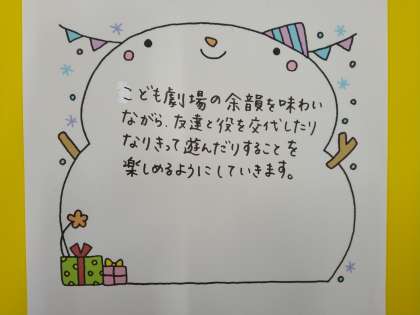 こども劇場の余韻を味わい
ながら、友達と役を交代したり
なりきって遊んだりすることを
楽しめるようにしていきます。